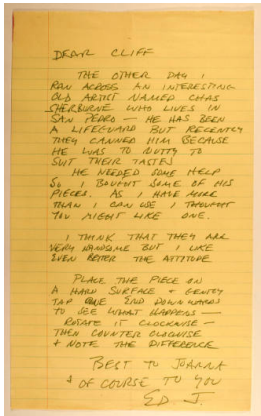 DEAR CLIFF
THE OTHER DAY I
RAN ACROSS AN INTERESTING
OLD ARTIST NAMED CHAS
SHERBURNE WHO LIVES IN
SAN PEDRO — HE HAS BEEN
A LIFEGUARD BUT RECENTLY
THEY CANNED HIM BECAUSE
HE WAS TO NUTTY TO
SUIT THEIR TASTES
HE NEEDED SOME HELP
SO I BOUGHT SOME OF HIS
PIECES. AS I HAVE MORE
THAN I CAN USE I THOUGHT
YOU MIGHT LIKE ONE.
I THINK THAT THEY ARE
VERY HANDSOME BUT I LIKE
EVEN BETTER THE ATTITUDE
PLACE THE PIECE ON
A HARD SURFACE & GENTLY
TAP ONE END DOWNWARDS
TO SEE WHAT HAPPENS —
ROTATE IT CLOCKWISE —
THEN COUNTER CLOCKWISE
& NOTE THE DIFFERENCE
BEST TO JOANNA
& OF COURSE TO YOU
ED J.